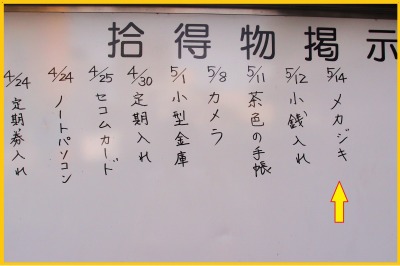 拾得物掲示
4/24 定期券入れ
4/24 ノートパソコン
4/25 セコムカード
4/30 定期入れ
5/1 小型金庫
5/8 カメラ
5/11 茶色の手帳
5/12 小銭入れ
5/14 メカジキ